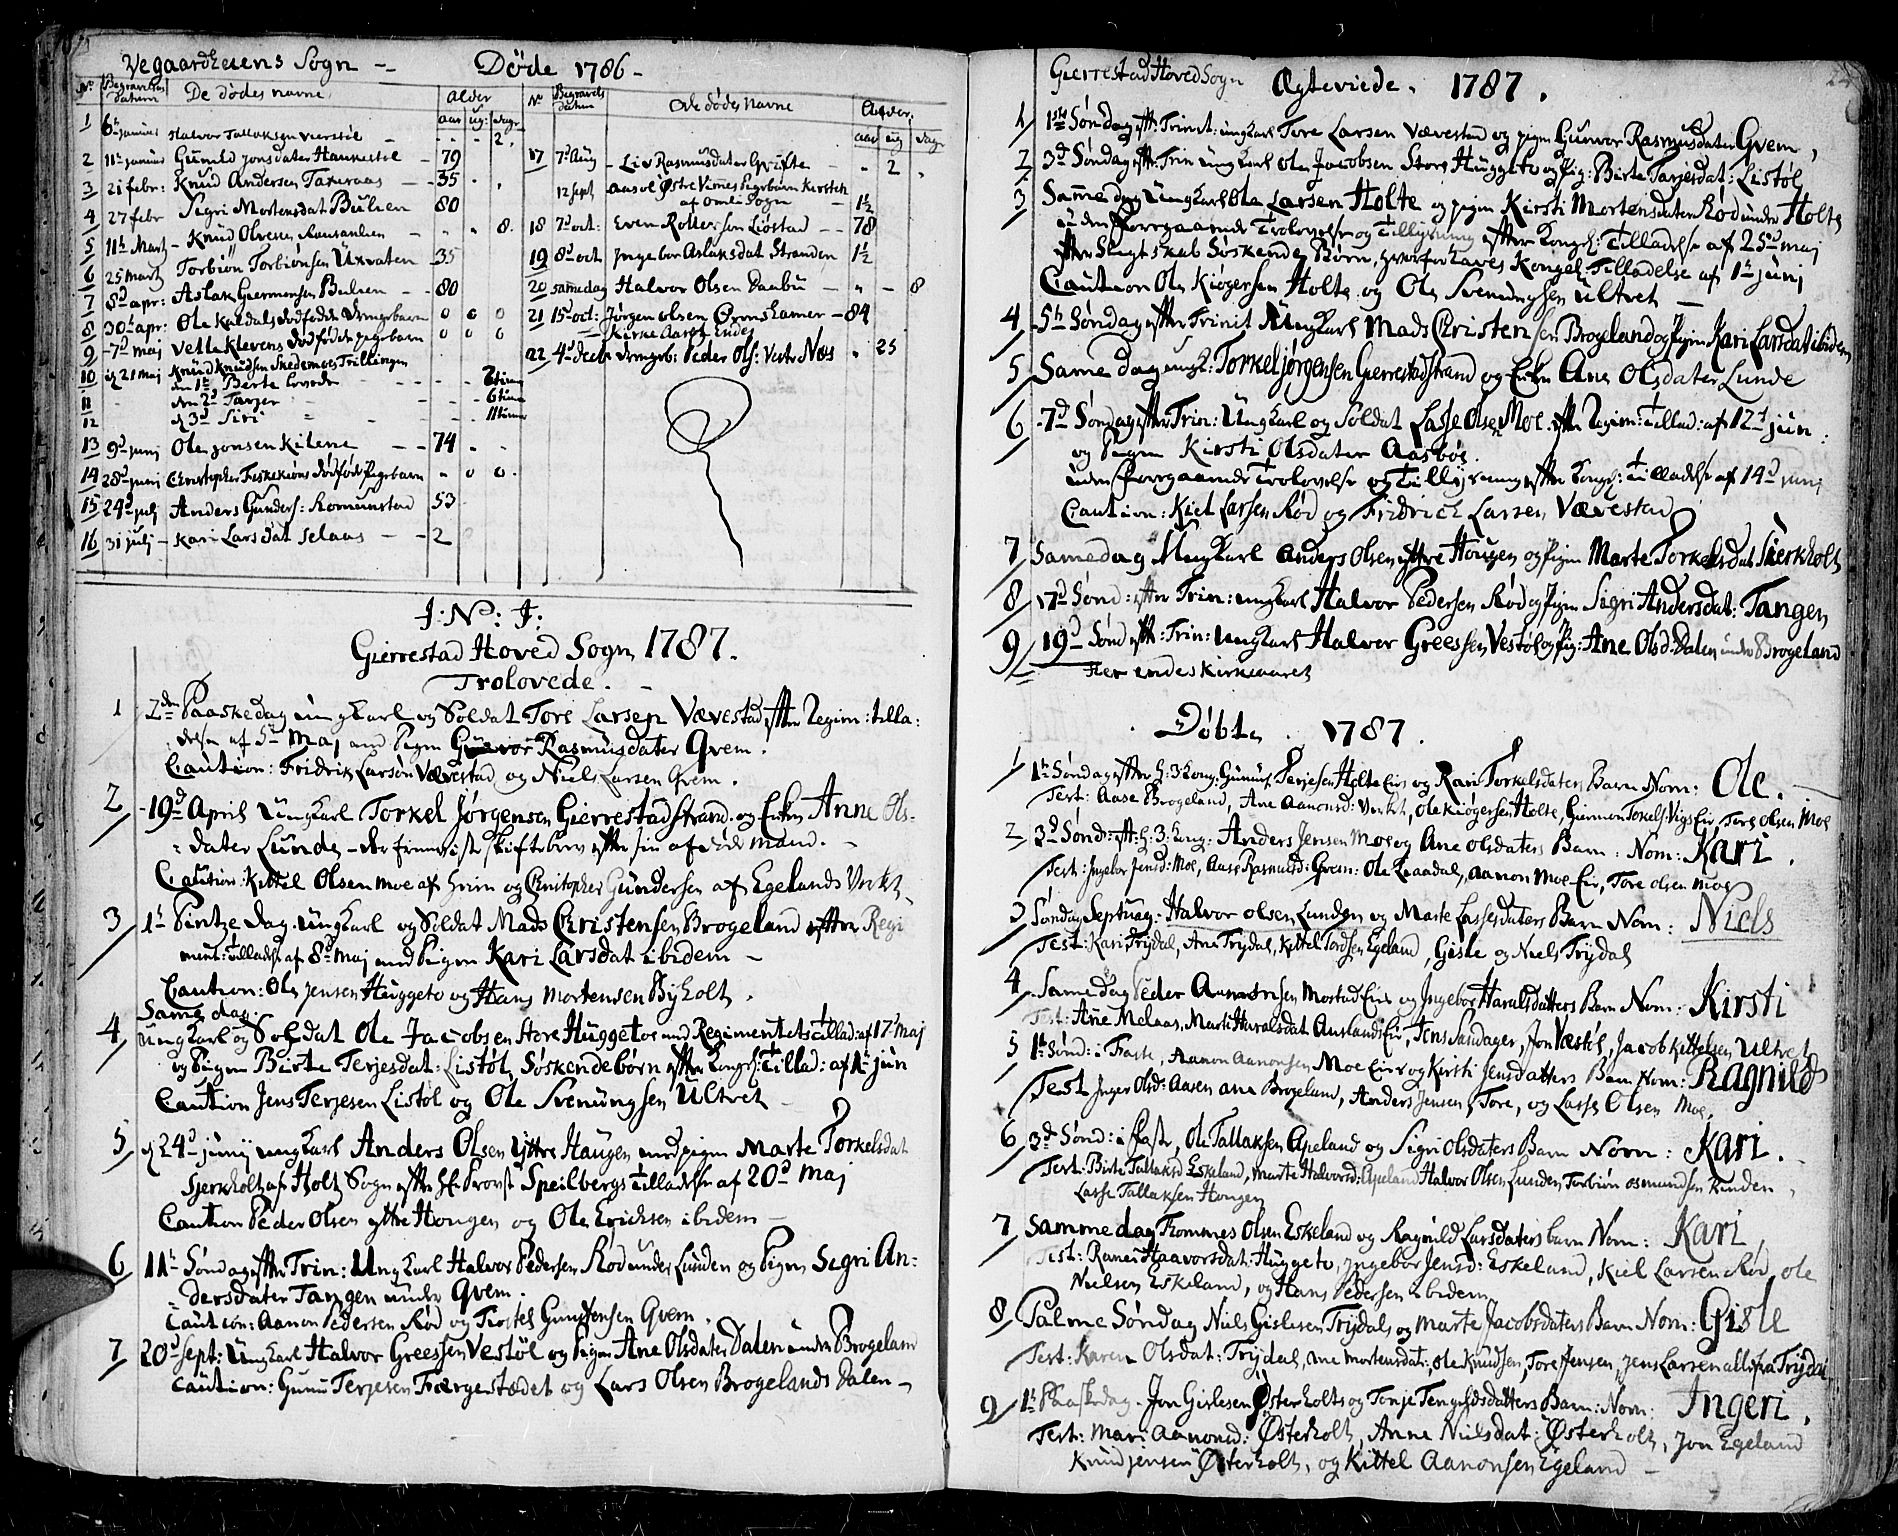 Vegaardheiens Sogn — Døde 1786 –
No Begravelses Datum De dødes navne Alder aar ug: dage
1 6te januar Halvor Tallaksen — 2.
2 11te januar Gunild Jonsdater Haukestøl – 79
3 21 febr: Knud Andersen Taxeraas – 35
4 27 febr Sigri Mortensdat 80
5 11te Mart – Knud Olvesen – – " 8.
6 25 Marti Torbiøn Torbiønsen Uxvaten 35
7 8d apr: Aslak Giermonsen – – 80
8 30te apr: Ole Kaldals dødfødde Drengebarn 0 0 0
9 7d Maj Vetle Klevens dødfødde pigebarn 0 0 0
10 d 21 Maj Knud Knudsen Skedemoes Trillinger
den 1te Berte levede – – 7 timer
11 den 2d Tarjer – – 6 timer
12 d 3d Siri – – 11 timer
13 9d junj Ole Jonsen Kilene – – 74
14 28d junj Christopher Fiskekiøns dødfødte Pigebarn " 0 0.
15 24d julj Anders Gunders: Romunstad 53
16 31 julj – Kari Larsdat Selaas – – 2
No Begravels Datum De dødes navne Alder aar ug dage
17 7d Aug – Liv Rasmusdater – " 2 "
12 sept Aasol Østre Vimmes Pigebarn Kirsten
af Omli Sogn – 1½
18 7d oct: Even Løstad – – 78
19 8d oct Ingebor Aslaksdat Stranden 1½
20 samedag Halvor Olsen Daabu – " – 8
21 15d oct: Jørgen Olsen – 84
– Kirke Aaret Endes
22 4d decbr Drengeb: Peder Ols: Vestre Næs " 25
J: N: J:
Gierrestad Hoved Sogn 1787.
Trolovede. –
1 2den Paaskedag ungkarl og Soldat Tore Larsen Vævestad efter Regim: tilla:
delse af 5te Maj med Pigen Gunvor Rasmusdater Qvem.
Caution: Fridrik Larsøn Vævestad og Niels Larsen Qvem.
2 19d April Ungkarl Torkel Jørgensen Gierrestadstrand og Enken Anne Ols-
dater Lunde – der fremviste skiftebrev efter sin afdøde mand. –
Caution: Kittel Olsen Moe af Grim og Christopher Gundersen af Egelands Verkt
3 1te Pintze dag Ungkarl og Soldat Mads Christensen Brogeland efter Regi
ment: tilladse af 8d Maj med Pigen Kari Larsdat ibidem –
Caution: Ole Jensen Huggeto og Hans Mortensen Byholt.
4 Same dag.
Ungkarl og Soldat Ole Jacobsen Store Huggetoe med Regimentets tillad: af 17d Maj
og Pigen Birte Terjesdat: Listøl Søskendebørn efter Kongel: Tillad: af 1te jun
Caution Jens Terjesen Listøl og Ole Svenungsen Ultvet –
5 d 24d junij ungkarl Anders Olsen Yttre Haugen med pigen Marte Torkelsdat
Sjerkholt af Holt Sogn efter Hr Provst Speilbergs Tilladelse af 20d Maj
Caution Peder Olsen yttre Hougen og Ole Ericksen ibidem –
6 11te Søndag efter Trin: Ungkarl Halvor Pedersen Rød under Lunden og Pigen Segri An-
dersdater Tangen under Qvem.
Caution: Aanon Pedersen Rød og Gundersen Qvem.
7 20d sept: Ungkarl Halvor Greessen Vestøl og Pigen Ane Olsdater Dalen under Brogeland
Caution: Gunu Terjesen Færgestædet og Lars Olsen Brogelands Dalen –
Gierrestad Hoved Sogn Ægteviede. 1787.
1 1ste Søndag efter: Trinit: ungkarl Tore Larsen Vævestad og pigen Gunvor Rasmusdater Qvem,
2 3d Søndag efter: Trin Ungkarl Ole Jacobsen Store Huggeto og Pig: Birte Tarjesdat: Listøl
3 Samme dag Ungkarl Ole Larsen Holte og pigen Kirsti Mortensdater Rød under Holte
uden Forregaaende Trolovelse og Tillysning efter Kongel: Tilladelse af 25d maj
efter Slegtskab Søskende Børn, hvorfor haves Kongel: Tilladelse af 1te junj
Caution Ole Kiøgersen Holte og Ole Svenungsen Ultvet –
4 5te Søndag efter Trinit Ungkarl Mads Christensen Brogeland og Pigen Kari Larsdat ibidem
5 Same dag ungk: Torkel Jørgensen Gierrestadstrand og Enken Ane Olsdater Lunde
6 7d Søndag efter Trin: Ungkarl og Soldat Lasse Olsen Moe efter Regim: Tillad: af 12te jun:
og Pigen Kirsti Olsdater Aasbøe.
uden Forregaaende Trolovelse og Tillysning efter Kongel: Tilladelse af 14d junj
Caution: Kiel Larsen Rød og Fridrich Larsen Vævestad
7 Samedag Ungkarl Anders Olsen yttre Hougen og Pigen Marte Torkelsdat Sierkholt
8 17d Sønd: efter Trin: ungkarl Halvor Pedersen Rød og Pigen Sigri Andersdat: Tangen
9 19d Sønd efter: Trin: Ungkarl Halvor Greessen Vestøl og Pig: Ane Olsd: Dalen under Brogeland
Her endes Kirkeaaret
Døbte 1787.
1 1te Søndag efter H: 3 Kong: Gunu: Terjesen Holte Eie og Kari Torkelsdaters Barn Nom: Ole.
Test: Aase Brogeland, Ane Aanonsd: Verket, Ole Kiøgersen Holte, Giermon Torkels: Vigs Eie, Tore Olsen Moe
2 2d Sønd: efter H: 3 Kong: Anders Jensen Moe og Ane Olsdaters Barn: Nom: Kari.
Test: Ingebor Jensd: Moe, Aase Rasmusd: Qvem: Ole Aanon Moe Eie, Tore Olsen Moe
3 Søndag Septuag: Halvor Olsen Lunden og Marte Lassesdaters Barn Nom: Niels
Test: Kari Trydal, Ane Trydal, Kittel Tordsen Egeland, Gisle og Niels Trydal
4 Samedag Peder Aanonsen Mostad Eie og Ingebor Haralsdatters Barn Nom: Kirsti
Test: Ane Melaas, Marte Haralsdat Ausland Eie, Jens Sandager, Jon Væstøl, Jacob Kittelsen Ultvet
5 1te Sønd: i Faste, Aanon Aanonsen Moe Eie og Kirsti Jensdatters Barn Nom: Ragnild
Test Inger Olsd: Aasen Ane Brogeland, Anders Jensen, Tore, og Lasse Olsen Moe,
6 3d Sønd: i Faste, Ole Tallaksen Apeland og Sigri Olsdaters Barn Nom: Kari.
Test: Birte Tallaksd Eskeland, Marte Halvorsd: Apeland Halvor Olsen Lunden Torbiøn Osmundsen Lunden,
Lasse Tallaksen Hougen
7 Samme dag Tommes Olsen Eskeland og Ragnild Larsdaters barn Nom: Kari
Test: Ranei Haavorsdat: Huggeto, Ingebor Jensd: Eskeland, Kiel Larsen Rød Ole
Nielsen Eskeland, og Hans Pedersen ibidem
8 Palme Søndag Niels Gislesen Trydals og Marte Jacobsdaters Barn Nom: Gisle
Test: Karen Olsdat: Trydal, Ane Mortensdat:, Ole Knudsen, Tore Jensen, Jens Larsen alle fra Trydal
9 1te Paaskedag – Jon Gislesen Østerholts og Tonje Tengelsdatters Barn: Nom: Ingeri.
Test: Mari Aanonsd: Østerholt, Anne Nielsdat: Østerholt, Jon Egeland
Knud Jensen Østerholt, og Kittel Aanonsen Egeland –